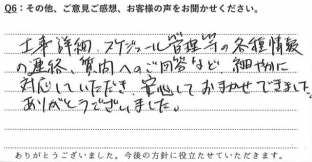 Q6：その他、ご意見ご感想、お客様の声をお聞かせください。
工事詳細、スケジュール管理等の各種情報
の連絡、質問へのご回答など、細やかに
対応していただき、安心しておまかせできました。
ありがとうございました。
ありがとうございました。今後の方針に役立たせていただきます。